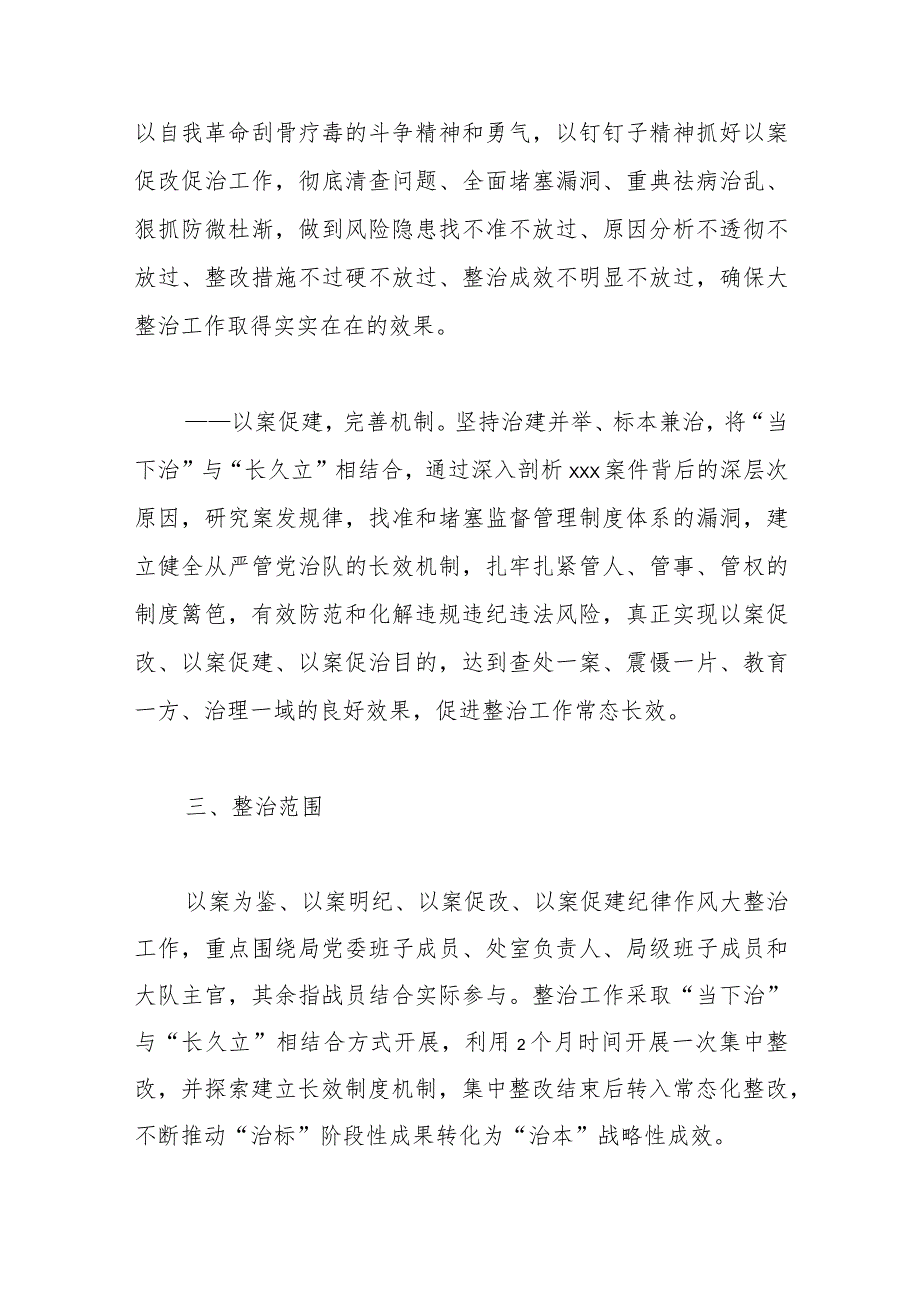 以自我革命刮骨疗毒的斗争精神和勇气，以钉钉子精神抓好以案
促改促治工作，彻底清查问题、全面堵塞漏洞、重典祛病治乱、
狠抓防微杜渐，做到风险隐患找不准不放过、原因分析不透彻不
放过、整改措施不过硬不放过、整治成效不明显不放过，确保大
整治工作取得实实在在的效果。
——以案促建，完善机制。坚持治建并举、标本兼治，将“当
下治”与“长久立”相结合，通过深入剖析xxx案件背后的深层次
原因，研究案发规律，找准和堵塞监督管理制度体系的漏洞，建
立健全从严管党治队的长效机制，扎牢扎紧管人、管事、管权的
制度篱笆，有效防范和化解违规违纪违法风险，真正实现以案促
改、以案促建、以案促治目的，达到查处一案、震慑一片、教育
一方、治理一域的良好效果，促进整治工作常态长效。
三、整治范围
以案为鉴、以案明纪、以案促改、以案促建纪律作风大整治
工作，重点围绕局党委班子成员、处室负责人、局级班子成员和
大队主官，其余指战员结合实际参与。整治工作采取“当下治”
与“长久立”相结合方式开展，利用2个月时间开展一次集中整
改，并探索建立长效制度机制，集中整改结束后转入常态化整改，
不断推动“治标”阶段性成果转化为“治本”战略性成效。